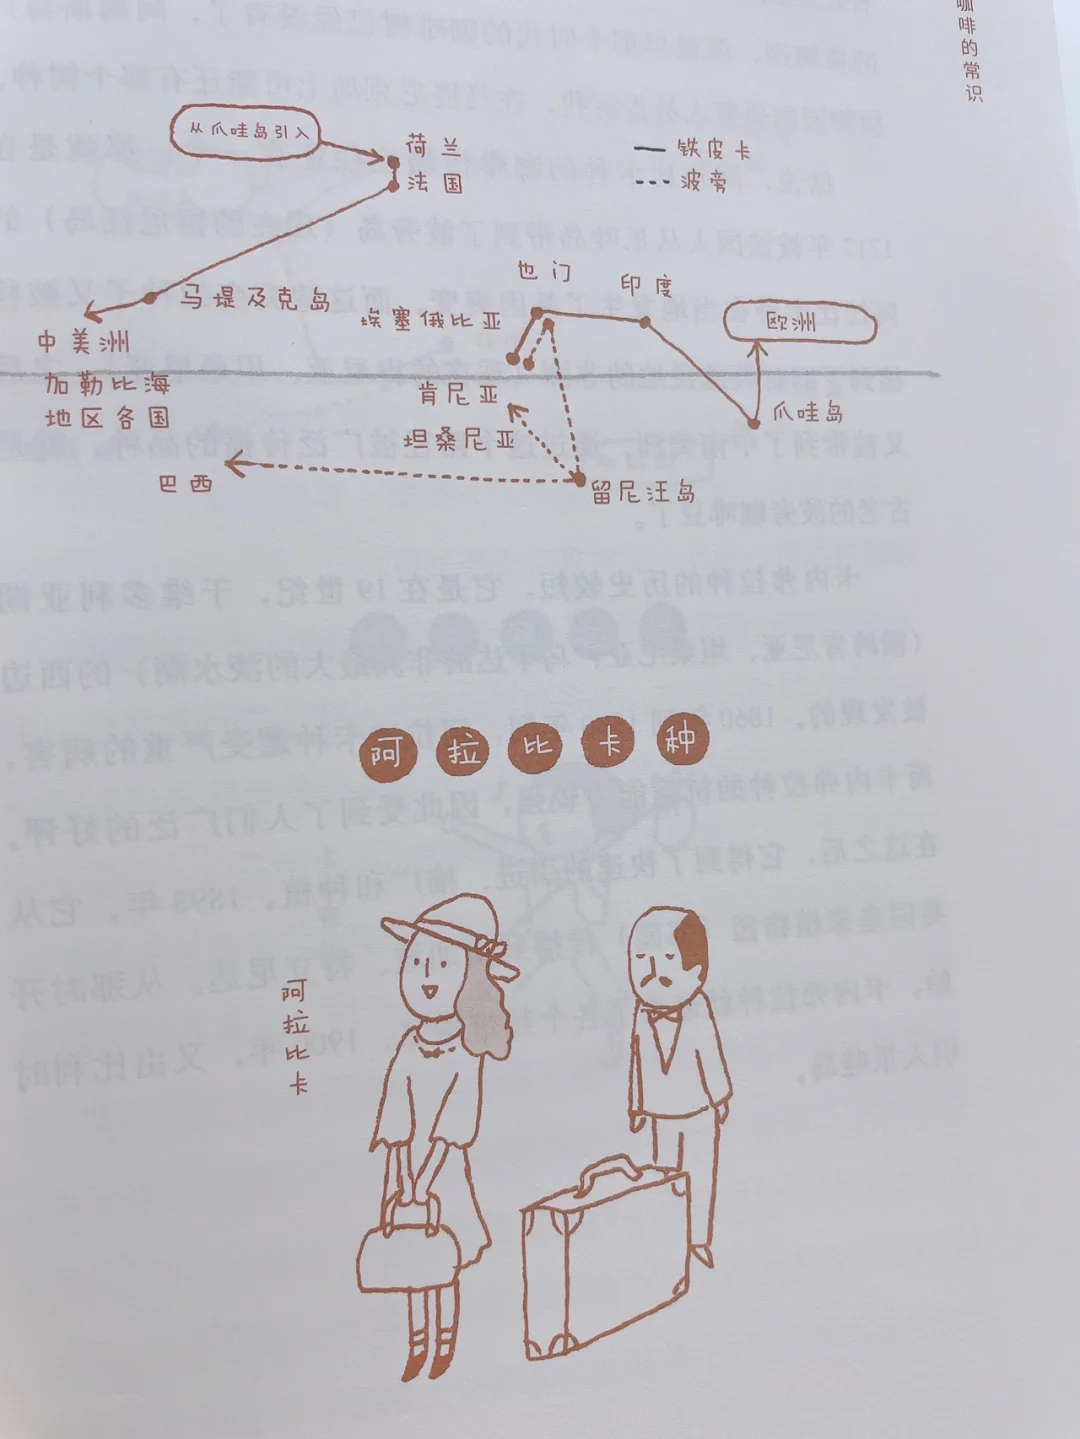 咖啡的常识
从爪哇岛引入
荷兰
法国
铁皮卡
波旁
马堤及克岛
中美洲
加勒比海
地区各国
也门
印度
埃塞俄比亚
欧洲
肯尼亚
坦桑尼亚
爪哇岛
巴西
留尼汪岛
阿拉比卡种
阿拉比卡